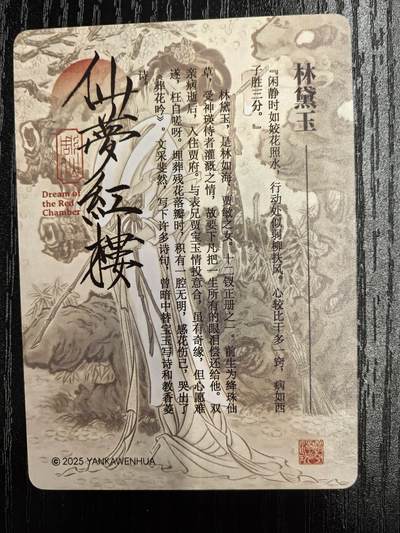 林黛玉
『闲静时如姣花照水，行动处似弱柳扶风。心较比干多一窍，病如西
子胜三分。』
林黛玉，是林如海、贾敏之女，十二钗正册之一。前生为绛珠仙
草，受神瑛侍者灌溉之情，故要下凡把一生所有的眼泪偿还给他。双
亲病逝后，入住贾府。与表兄贾宝玉情投意合，虽有奇缘，但心愿难
遂，枉自嗟呀。埋葬残花落瓣时，积有一腔无明，感花伤己，哭出了
《葬花吟》。文采斐然，写下许多诗句，曾暗中替宝玉写诗和教香菱
诗。
仙夢紅樓
Dream of
the Red
Chamber
© 2025 YANKAWENHUA